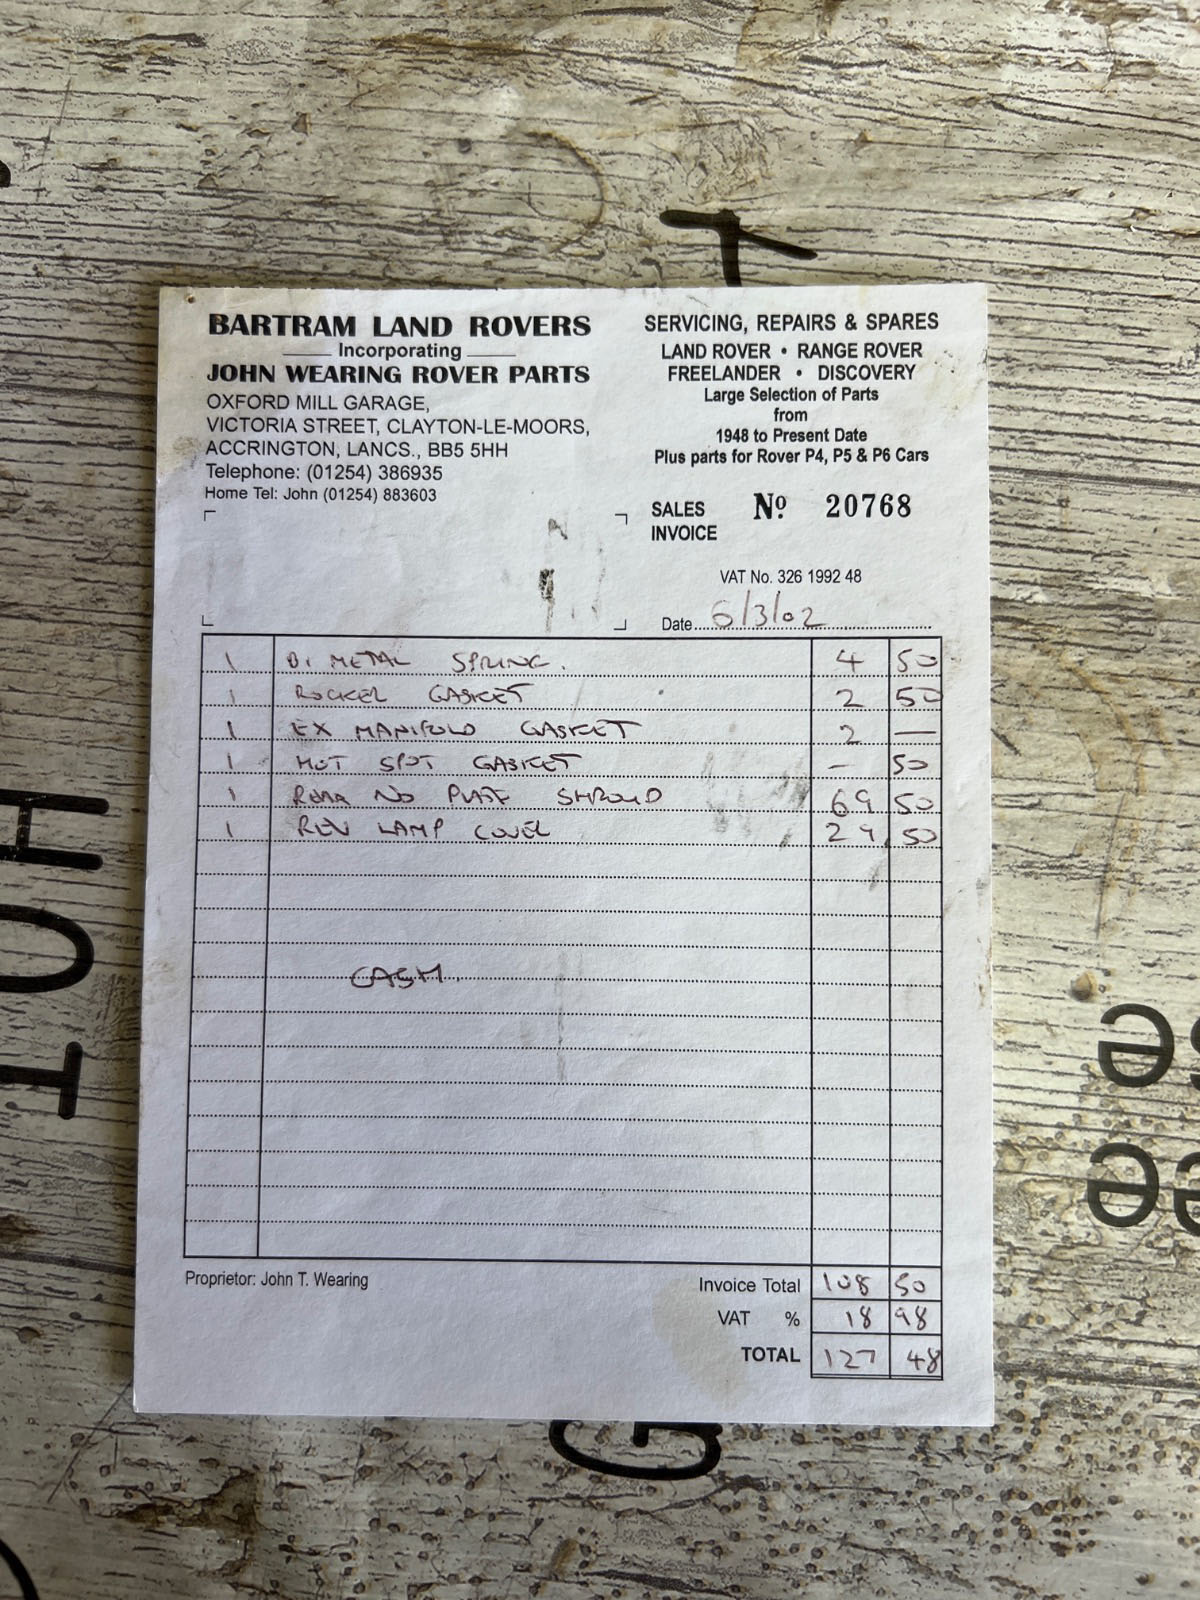 BARTRAM LAND ROVERS
Incorporating
JOHN WEARING ROVER PARTS
OXFORD MILL GARAGE,
VICTORIA STREET, CLAYTON-LE-MOORS,
ACCRINGTON, LANCS., BB5 5HH
Telephone: (01254) 386935
Home Tel: John (01254) 883603
SERVICING, REPAIRS & SPARES
LAND ROVER • RANGE ROVER
FREELANDER • DISCOVERY
Large Selection of Parts
from
1948 to Present Date
Plus parts for Rover P4, P5 & P6 Cars
SALES INVOICE Nº 20768
VAT No. 326 1992 48
Date 6/3/02
1 BI METAL SPRING. 4 50
1 ROCKER GASKET 2 50
1 EX MANIFOLD GASKET 2 —
1 HOT SPOT GASKET – 50
1 REAR NO PLATE SHROUD 69 50
1 REV LAMP COVER 29 50
CASH
Proprietor: John T. Wearing
Invoice Total 108 50
VAT % 18 98
TOTAL 127 48